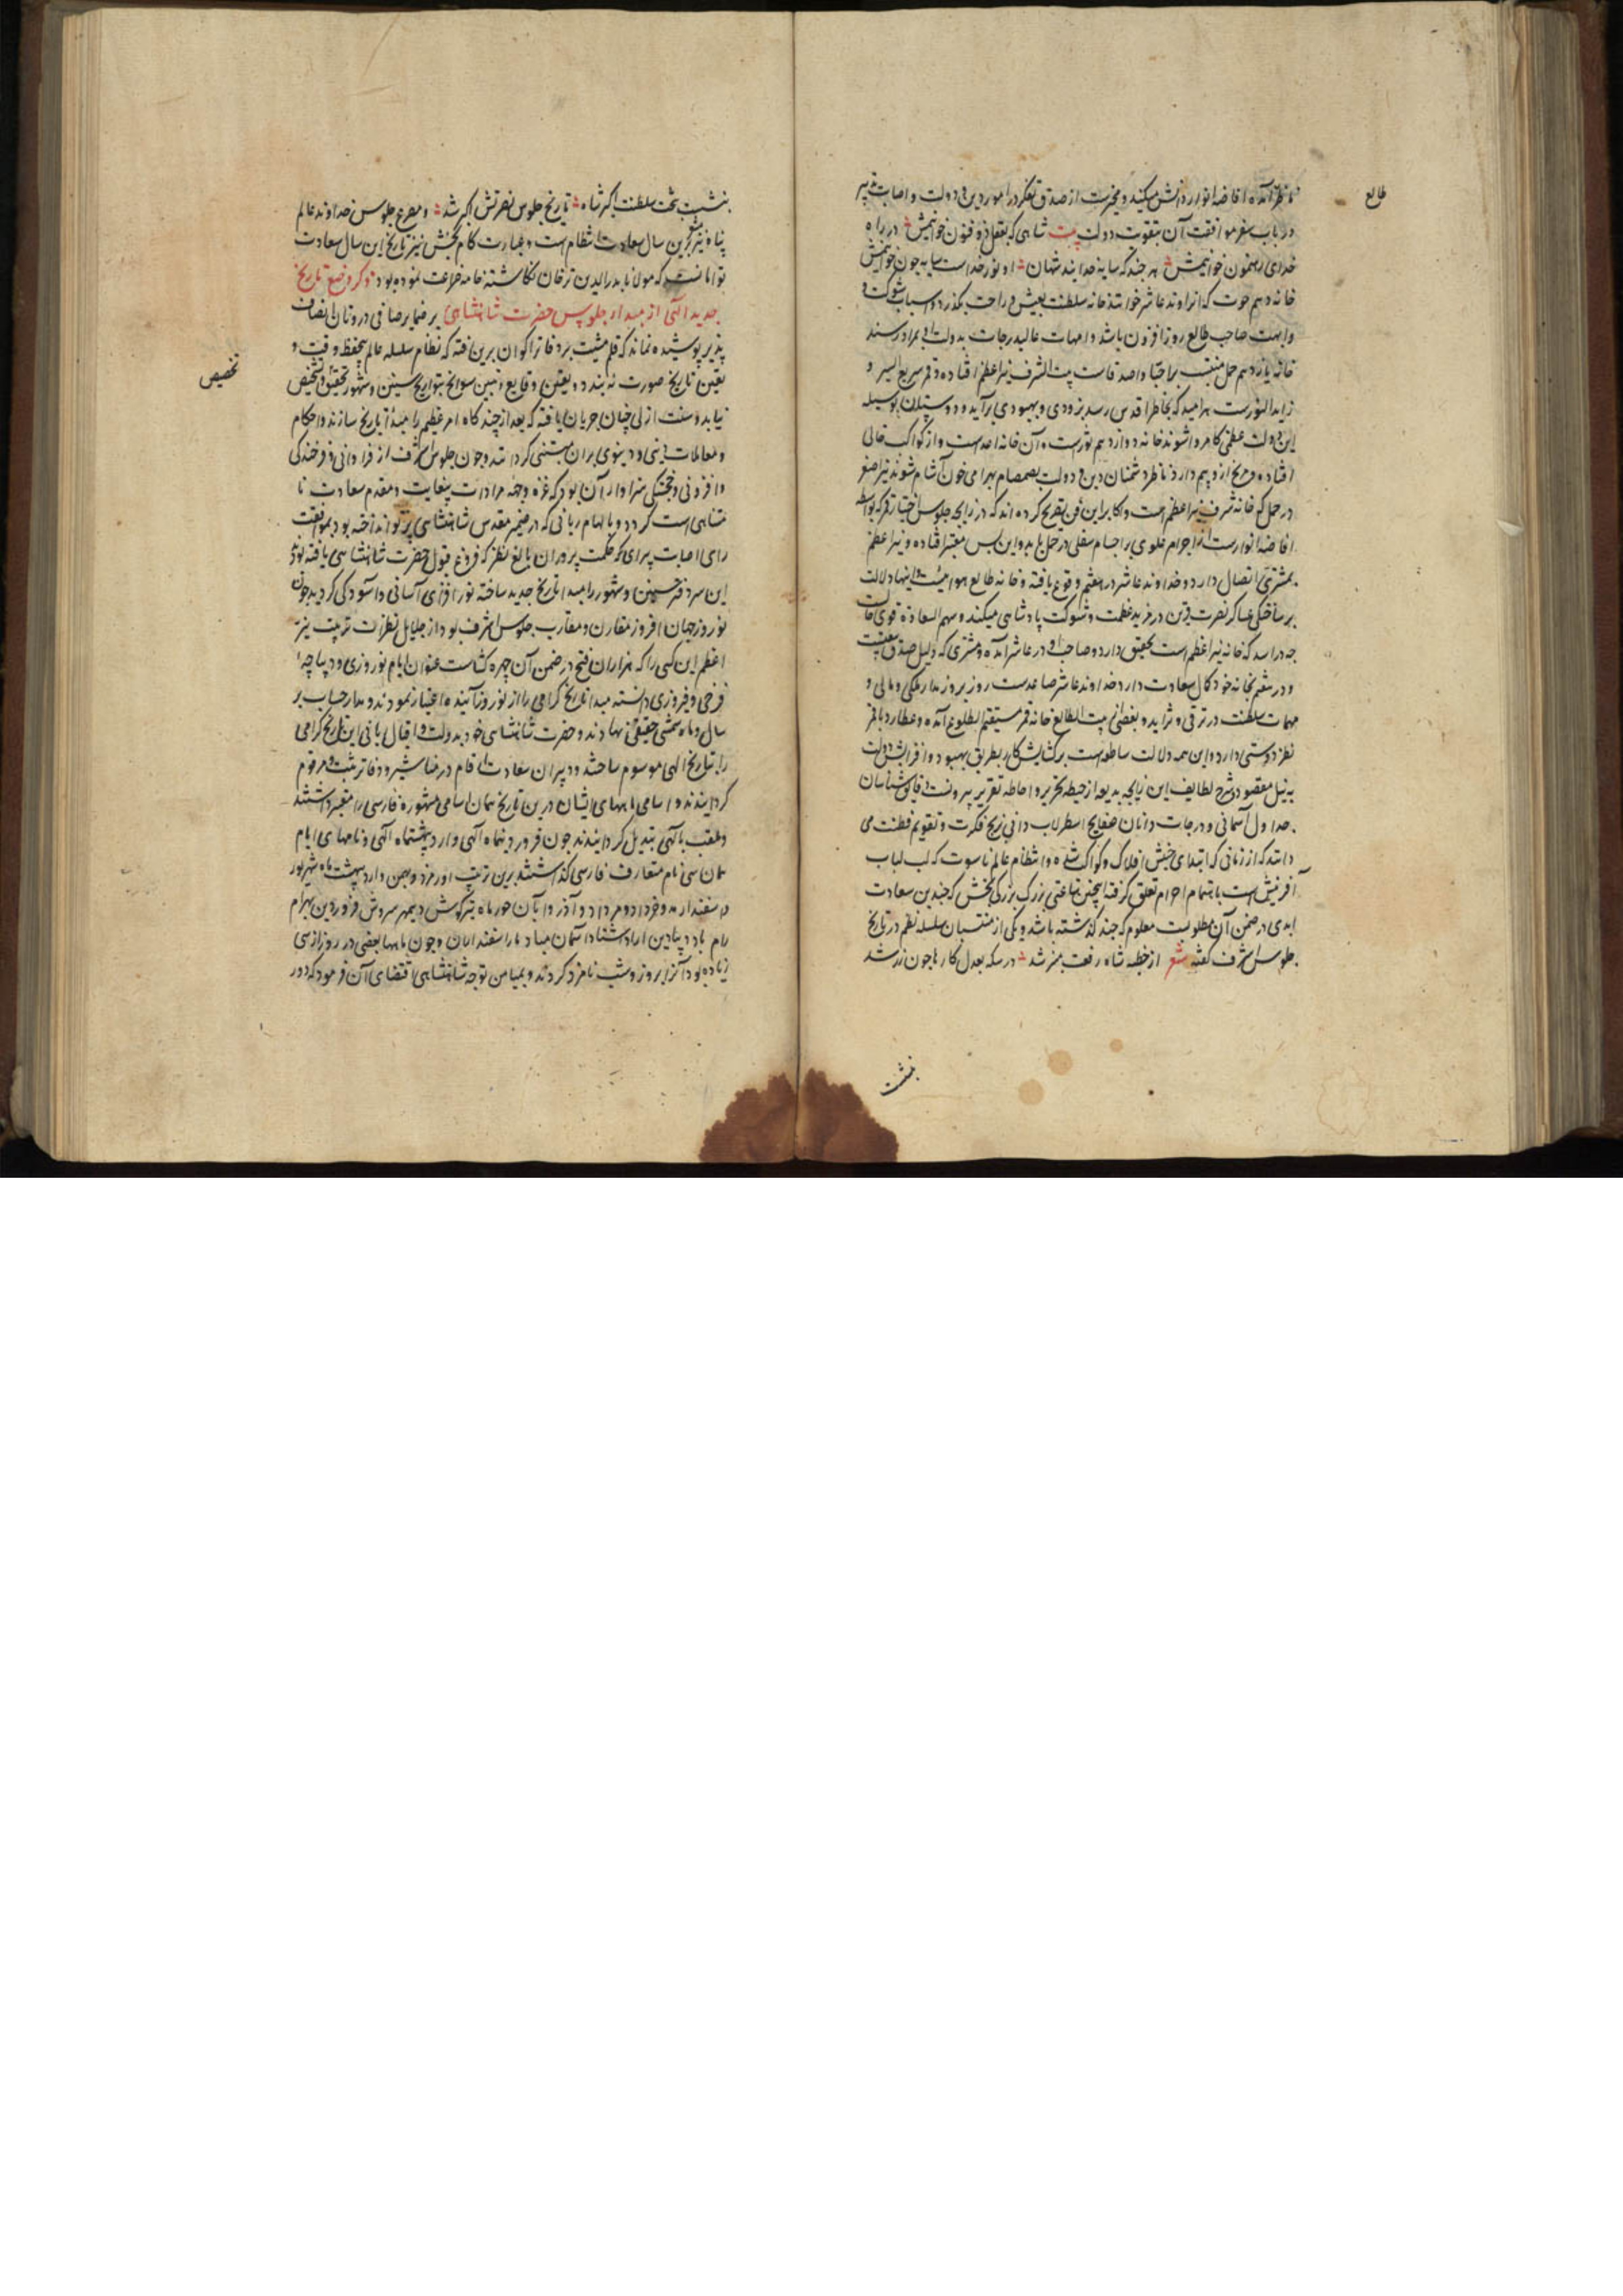 طالع
ناظر آمده افاضه انوار دانش میکند و مخبرست از صدق تفکر در امور دین و دولت و اصابت تدبیر
در باب سفر موافقت آن بتقوت دولت بیت شاهی که بعقل ذو فنون خوانیمش در راه
خدای رهنمون خوانیمش هر چند که سایه خدایند شهان او نور خداست سایه چون خوانیمش
خانه دهم حوت که انرا وتد عاشر خوانند خانه سلطنت بعیش و راحت بگذرد و اسباب شوکت و
و ابهت صاحب طالع روز افزون باشد و امهات عالیدرجات بدولت او بمراد رسند
خانه یازدهم حمل منتسب براحبا و اصدقاست بیت الشرف نیر اعظم افتاده و قمر سریع السیر و
زاید النورست هر امید که بخاطر اقدس رسد بزودی و بهبودی برآید و دوستان بوسیله
این دولت عظمی کامروا شوند خانه دوازدهم ثورست و آن خانه اعداست و از کواکب خالی
افتاده و مریخ ازو بیم دارد ناظر دشمنان دین و دولت بصمصام بهرامی خون آشام شوند نیر اصغر
در حمل که خانه شرف نیر اعظم است و اکابر این فن تصریح کرده اند که در زایجه جلوس اختیار قمر که بواسطه
افاضه انوارست از اجرام علوی بر اجسام سفلی در حمل باید و این بس معتبر افتاده و نیر اعظم
بمشتری اتصال دارد و خداوند عاشر در هفتم وقوع یافته و خانه طالع هوائیست و اینها دلالت
بر ساختگی عساکر نصرت قرین در مزید عظمت و شوکت پادشاهی میکند و سهم السعاده قوی حالست
چه در اسد که خانه نیر اعظم است تحقیق دارد و صاحب او در عاشر آمده و مشتری که دلیل صدق نیتست
و در هفتم بخانه خود کمال سعادت دارد خداوند عاشر صاعدست روز بروز مدار ملکی و مالی و
مهمات سلطنت در ترقی و تزاید و بعضی از بیت الطالع خانه قمر مستقیم الطلوع آمده و عطارد با قمر
نظر دوستی دارد و این همه دلالت ساطعه است بر گشایش کار بطریق بهبود و افزایش دولت
به نیل مقصود و شرح لطایف این زایجه بدیعه از حیطه تحریر و احاطه تقریر بیرونست دقایق شناسان
جداول آسمانی و درجات دانان صفایح اسطرلاب دانی زیج فکرت و تقویم فطنت می
دانند که از زمانی که ابتدای جنبش افلاک و کواکب شده و انتظام عالم ناسوت که لب لباب
آفرینش است باهتمام اجرام تعلق گرفته اینچنین ساعتی بزرگ بزرگی بخش که چندین سعادت
ابدی در ضمن آن مطلوبست معلوم که چند گذشته باشد و یکی از منتسبان سلسله نظم در تاریخ
جلوس اشرف گفته شعر از خطبه شاه رفعت منبر شد در سکه بعدل کارها چون زر شد
بنشست
بنشست بتخت سلطنت اکبر شاه تاریخ جلوس نصرتش اکبر شد و مصرع جلوس خداوند عالم
پناه نیز مخبر این سال سعادت انتظام است و عبارت کام بخش نیز تاریخ این سال سعادت
توامانست که مولانا بدرالدین ترخان نگاشته خامه ضراعت نموده بود ذکر وضع تاریخ
جدید الهی از مبداء جلوس حضرت شاهنشاهی بر ضمایر صافی درونان انصاف
پذیر پوشیده نماند که قلم مشیت بر دفاتر اکوان برین رفته که نظام سلسله عالم بحفظ وقت و
تعین تاریخ صورت نه بندد و تعین وقایع و تبیین سوانح بتواریخ سنین و شهور تحقق و تشخیص
تخصیص
نیابد و سنت ازلی چنان جریان یافته که بعد از چند گاه امر عظیم را مبداء تاریخ سازند و احکام
و معاملات دینی و دنیوی بران مبتنی گردانند و چون جلوس اشرف از فراوانی فرخندگی
و افزونی خجستگی سزاوار آن بود که غره وجهه مرادات بیغایت و مقدم سعادت نا
متناهی است گردد و بالهام ربانی که در ضمیر مقدس شاهنشاهی پرتو انداخته بود بموافقت
رای اصابت پیرای حکمت پروران بالغ نظر که فروغ قبول حضرت شاهنشاهی یافته بود
این سر دفتر سنین و شهور را مبداء تاریخ جدید ساخته نور افزای آسانی و آسودگی گردید چون
نوروز جهان افروز مقارن و مقارب جلوس اشرف بود از جلایل نظرات تربیت نیر
اعظم این کسی را که هزاران فتح در ضمن آن چهره گشاست عنوان ایام نوروزی و دیباچه
فرخی و فیروزی دانسته مبداء تاریخ گرامی را از نوروز آینده اختیار نمودند و مدار حساب بر
سال و ماه شمسی حقیقی نهادند و حضرت شاهنشاهی خود بدولت و اقبال بانی این تاریخ گرامی
را بتاریخ الهی موسوم ساختند و دبیران سعادت ارقام در مناشیر و دفاتر مثبت و مرقوم
گردانیدند و اسامی ماههای ایشان درین تاریخ همان اسامی مشهوره فارسی را معتبر داشتند
و ملقب بالهی تبدیل گردانیدند چون فروردینماه الهی و اردیبهشتماه الهی و نامهای ایام
همان سی نام متعارف فارسی گذاشتند برین ترتیب اورمزد و بهمن و اردیبهشت ماه شهریور
و اسفندارمد و خرداد و مرداد و آذر و آبان خور ماه تیر گوش دیمهر سروش فروردین بهرام
رام باد دیبادین ارد اشتاد آسمان مباد ماراسفند انیران و چون ماهها بعضی در روز از سی
زیاده بود آنرا بروز و شب نامزد کردند و بمیامن توجه شاهنشاهی اقتضای آن فرمود که دور